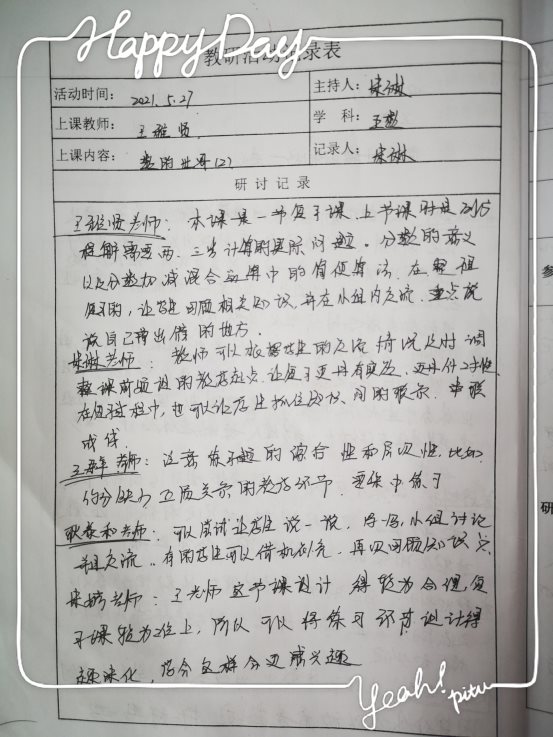 Happy Day
教研活动记录表
活动时间: 2021.5.27 主持人: 宋琳
上课教师: 王雅贤 学 科: 数
上课内容: 数的世界(2) 记录人: 宋琳
研 讨 记 录
王雅贤老师: 本课是一节复习课,上节课时是
理解需要两、三步计算的实际问题。分数的意义
以及分数加减混合运算中的简便算法,在
时,让学生回顾相关知识,并在小组内交流,重点说
说自己容易出错的地方。
宋琳老师: 教师可以根据学生的交流情况及时调
整课前预设的教学起点,让复习更具有实效,更具有针对性
在复习过程中,也可以让学生抓住知识间的联系,串联
成线。
老师: 注意练习题的综合性和层次性,比如
约分缺少 的教学环节,要集中练习
耿 和老师: 可以尝试让学生说一说,写一写,小组讨论
组交流,有的学生可以借机补充,再次回顾知识点
宋 老师: 王老师这节课设计得较为合理,复
习课较为 上,所以可以将练习环节设计得
趣味化,学生这样会更感兴趣
Yeah!
pitu
研